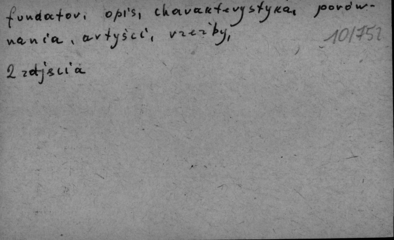 fundator, opis, charakterystyka, porów-
nania, artyści, rzeźby,
10/752
2 zdjęcia